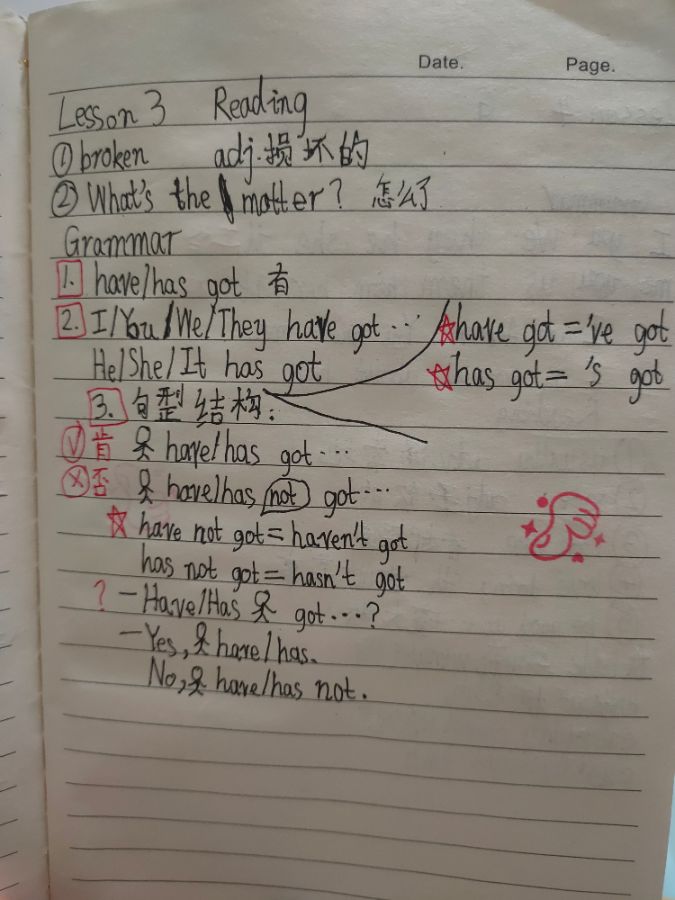 Date. Page.
Lesson 3 Reading
① broken adj. 损坏的
② What's the matter? 怎么了
Grammar
1. have/has got 有
2. I/You/We/They have got ... ☆have got ='ve got
He/She/It has got ☆has got= 's got
3. 句型结构:
√ 肯 have/has got ...
× 否 have/has not got ...
☆ have not got = haven't got
has not got = hasn't got
? - Have/Has got ...?
- Yes, have/has.
No, have/has not.